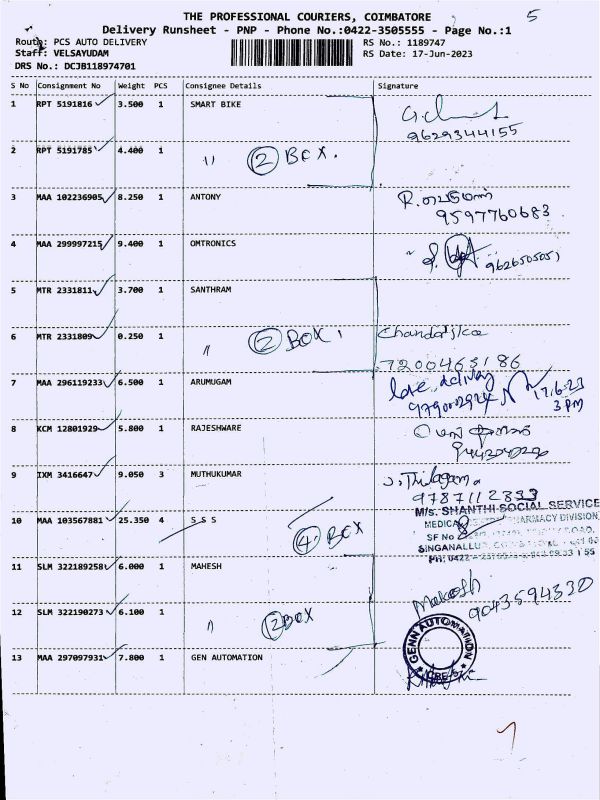 5
THE PROFESSIONAL COURIERS, COIMBATORE
Delivery Runsheet - PNP - Phone No.:0422-3505555 - Page No.:1
Route: PCS AUTO DELIVERY RS No.: 1189747
Staff: VELSAYUDAM RS Date: 17-Jun-2023
DRS No.: DCJB118974701
S No Consignment No Weight PCS Consignee Details Signature
1 RPT 5191816 3.500 1 SMART BIKE
9629344155
2 RPT 5191785 4.400 1 " 2 BOX.
3 MAA 102236905 8.250 1 ANTONY
9597760683
4 MAA 299997215 9.400 1 OMTRONICS
5 MTR 2331811 3.700 1 SANTHRAM
6 MTR 2331809 0.250 1 " 2 BOX.
7200463186
7 MAA 296119233 6.500 1 ARUMUGAM
delivery
17.6.23
3 PM
8 KCM 12801929 5.800 1 RAJESHWARE
9 IXM 3416647 9.050 3 MUTHUKUMAR
9787112833
10 MAA 103567881 25.350 4 S S S 4 BOX
M/s. SHANTHI SOCIAL SERVICE
MEDICAL PHARMACY DIVISION
SF No
SINGANALLUR
11 SLM 322189258 6.000 1 MAHESH
Mahesh 9043594330
12 SLM 322190273 6.100 1 " 2 BOX
13 MAA 297097931 7.800 1 GEN AUTOMATION
GENN AUTOMATION
CBE-5